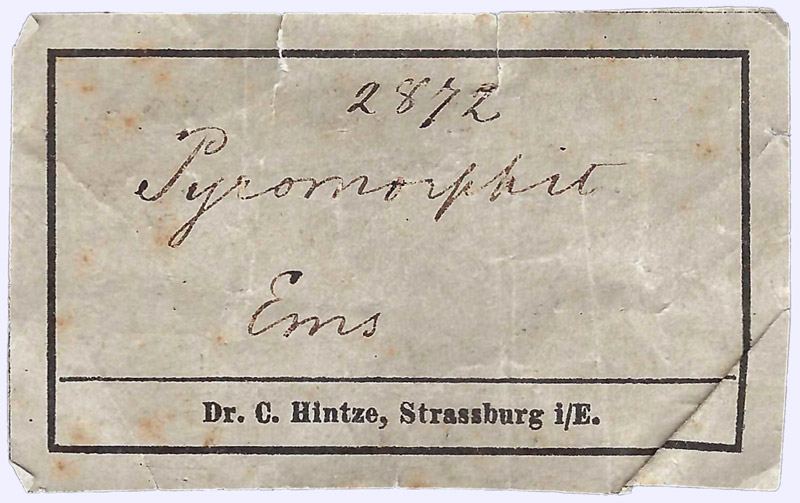 2872
Pyromorphit
Ems
Dr. C. Hintze, Strassburg i/E.